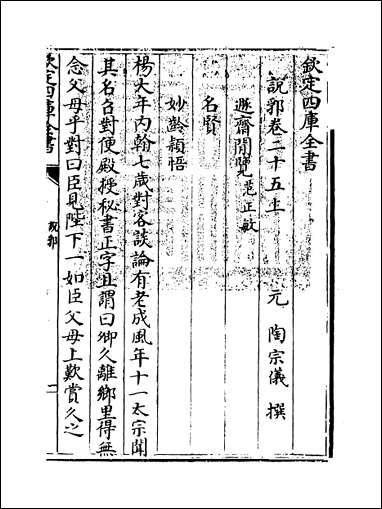 欽定四庫全書
說郛卷二十五上
元 陶宗儀 撰
遯齋閒覽 范正敏
名賢
妙齡穎悟
楊大年内翰七歲對客談論有老成風年十一太宗聞
其名召對便殿授秘書正字且謂曰卿久離鄉里得無
念父母乎對曰臣見陛下一如臣父母上歎賞久之
欽定四庫全書
說郛